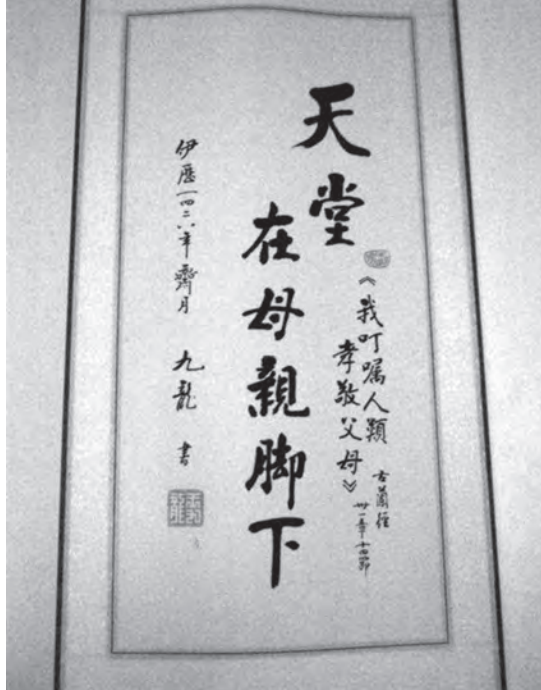 天堂
在母親脚下
《我叮嘱人類
孝敬父母》
古蘭經
卅一章十四節
伊歷一四二八年齋月 九龍 書